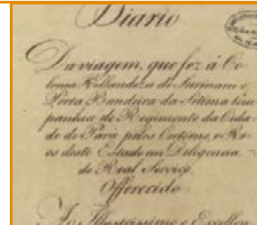 Diario
Da viagem, que fez á Co-
lonia Hollandeza de Surinam o
Porta Bandeira da Setima Com
panhia do Regimento da Cida
de do Pará pelos Certoens, e Ri-
os deste Estado em Diligencia
do Real Serviço.
Offerecido
Ao Illustrissimo e Excellen